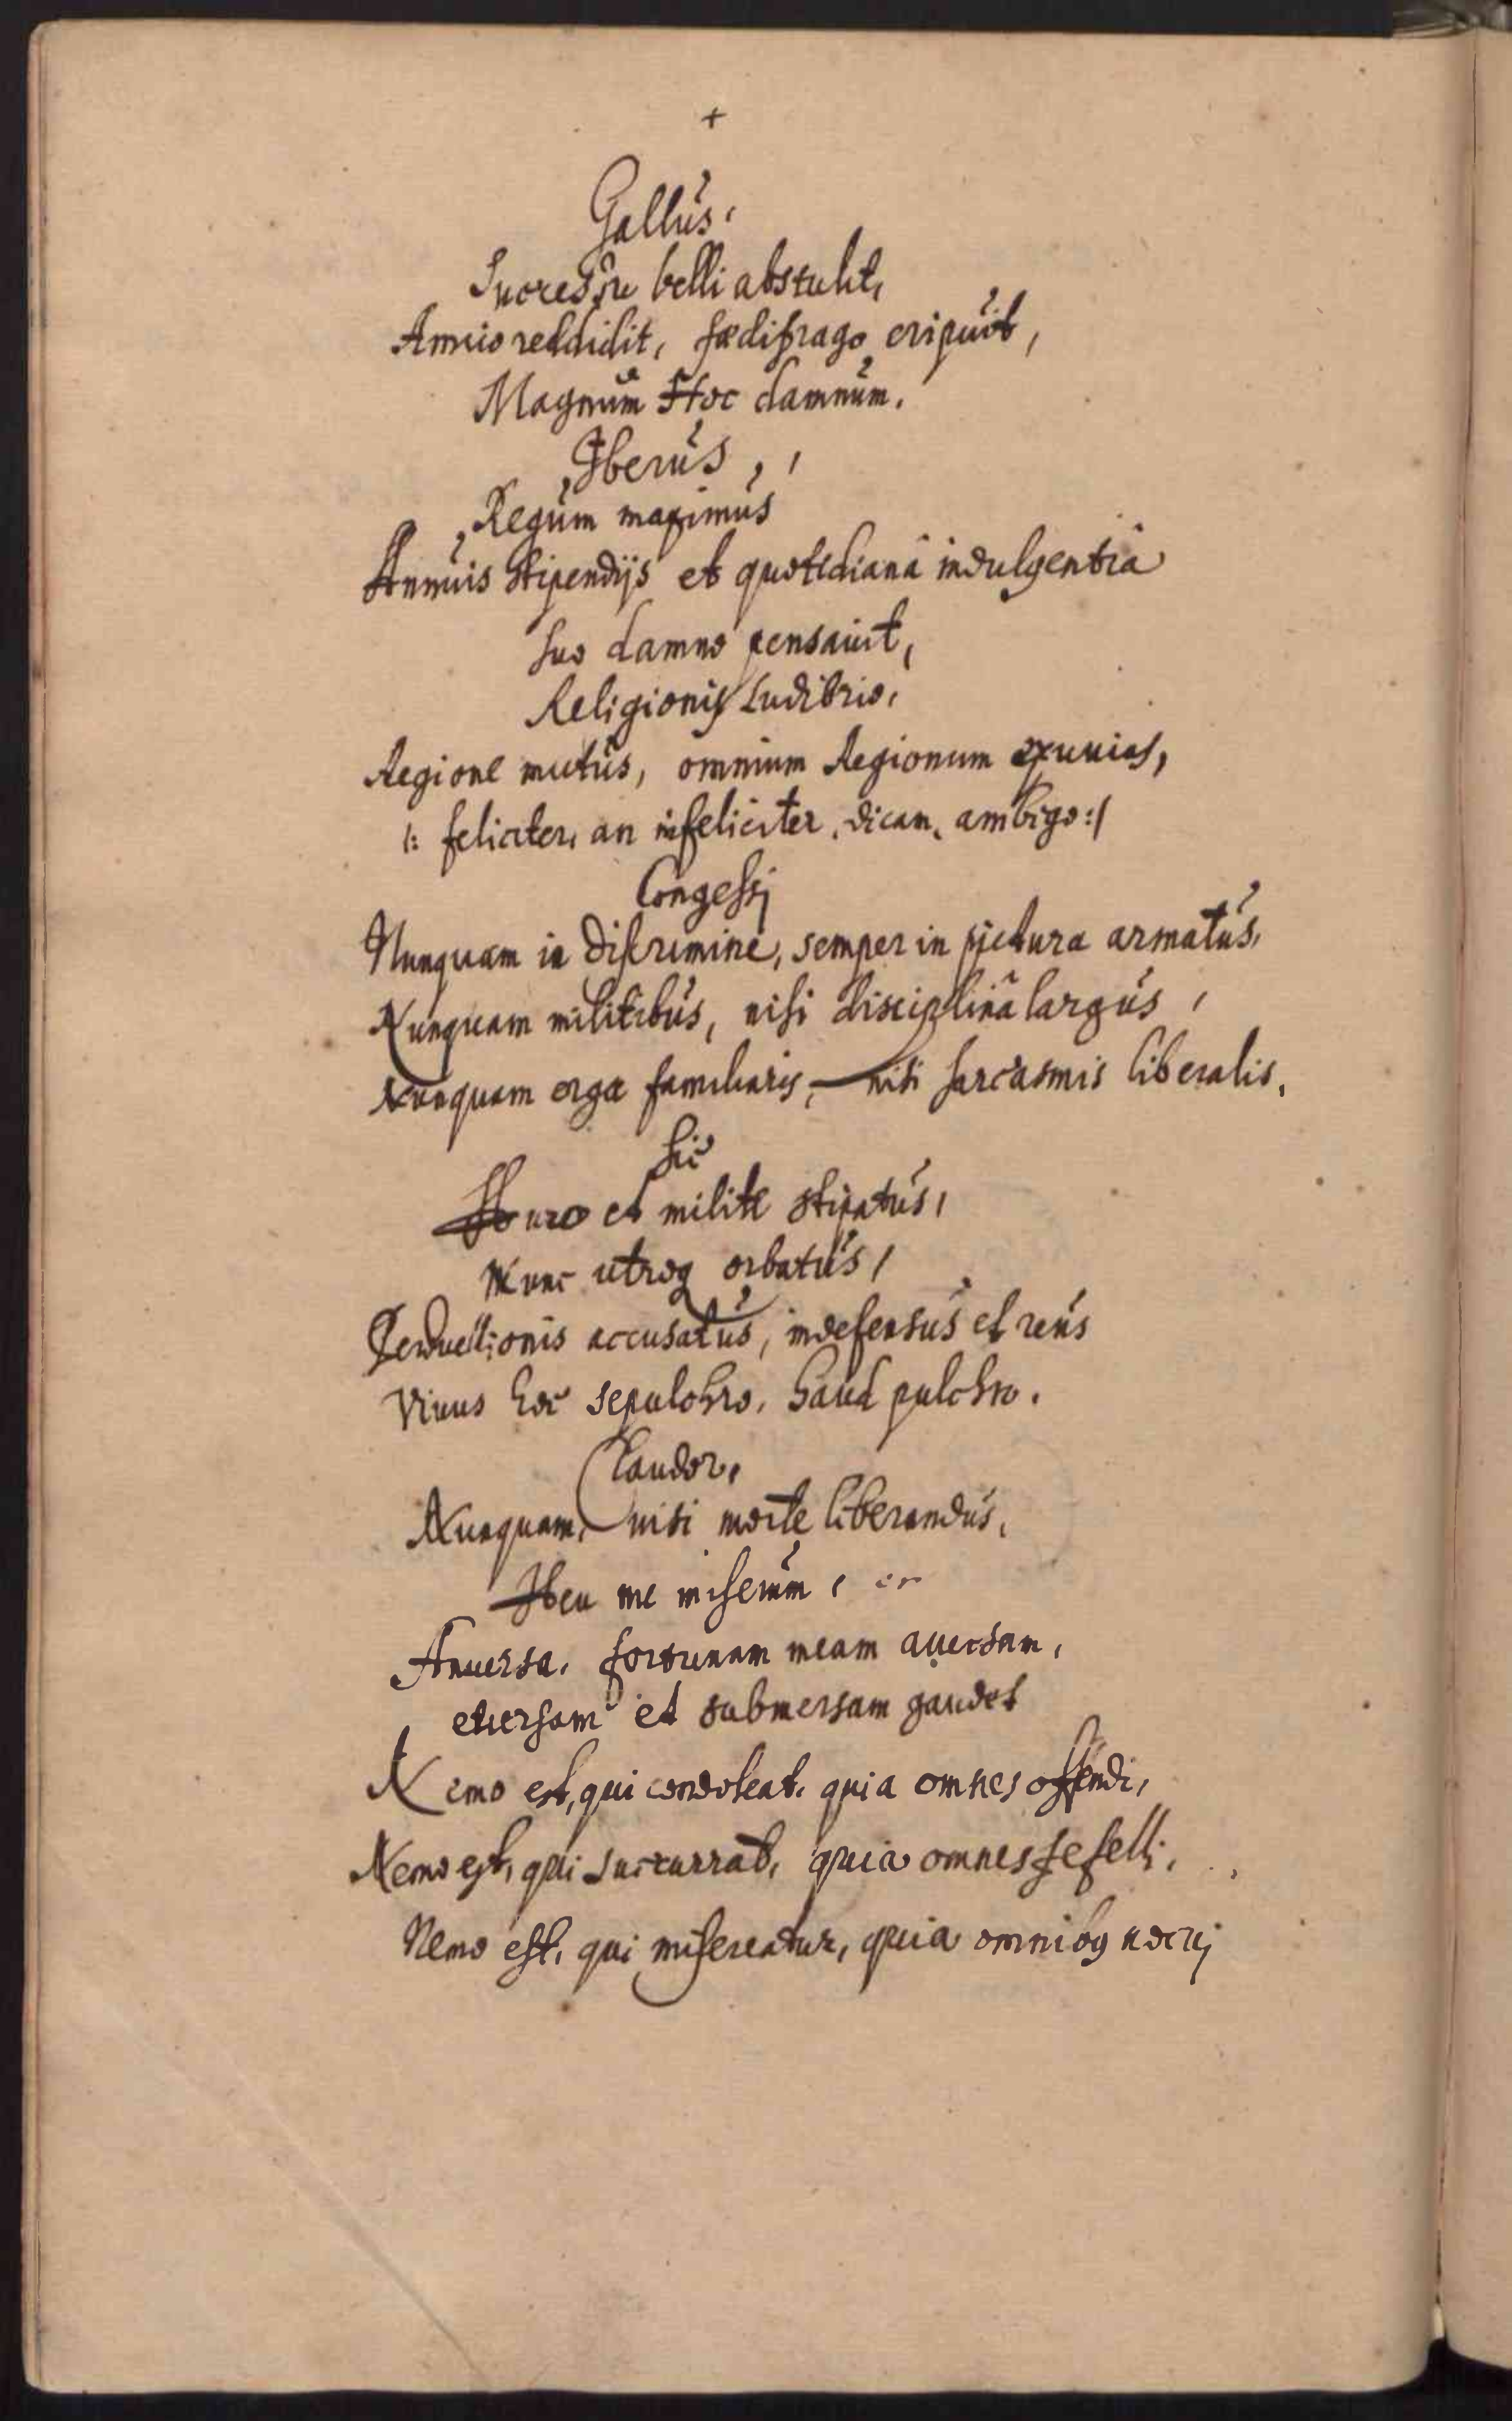 +
Gallus,
Successu belli abstulit,
Amico reddidit, fœdifrago eripuit,
Magnum Hoc damnum.
Iberus,,
Regum maximus
Annuis stipendijs et quotidianâ indulgentiâ
suo damno pensauit,
Religionis Ludibrio,
Regione mutus, omnium Regionum exuuias,
/: feliciter, an infeliciter, dicam, ambigo :/
Congessj
Nunquam in discrimine, semper in pictura armatus,
Nunquam militibus, nisi disciplinâ largus,
Nunquam erga familiaris, nisi sarcasmis liberalis,
Sic
Auro et milite stipatus,
Nunc utroq orbatus,
Perduellionis accusatus, indefensus et reus
Viuus hoc sepulchro, haud pulchro.
Claudor,
Nunquam, nisi morte liberandus,
Heu me miserum, en
Anuersa, fortunam meam auersam,
euersam et submersam gaudet
Nemo est, qui condoleat, quia omnes offendi,
Nemo est, qui succurrat, quia omnes fefelli,
Nemo est, qui misereatur, quia omnibq nocuj